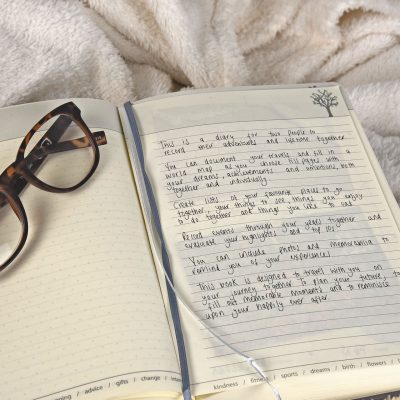 This is a diary for two people to
record their adventures and lifetime together
You can document your travels and fill in a
world map as you choose fill pages with
your dreams, achievements and intentions, both
together and individually
Create lists of your favourite places to go
together, your things to see, things you enjoy
to do together and things you like to eat
Record events through your years together and
evaluate your highlights and top 10s
You can include photos and memorabilia to
remind you of your experiences
This book is designed to travel with you on
your journey together to plan your future, to
fill out memorable moments and to reminisce
upon your happily ever after
/ advice / gifts / change /
kindness / fitness / sports / dreams / birth / flowers /